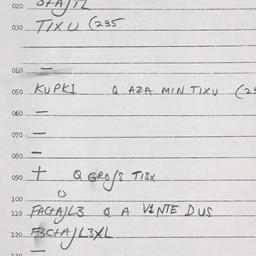 020
030 TIXU (235
040 —
050 KUPKI Q AZA MIN TIXU (23
060 —
070 —
080 —
090 + Q GROJS TISX
100
110 FACHAJL3 Q A VINTE DUS
120 F3CHAJL3XL
130 —